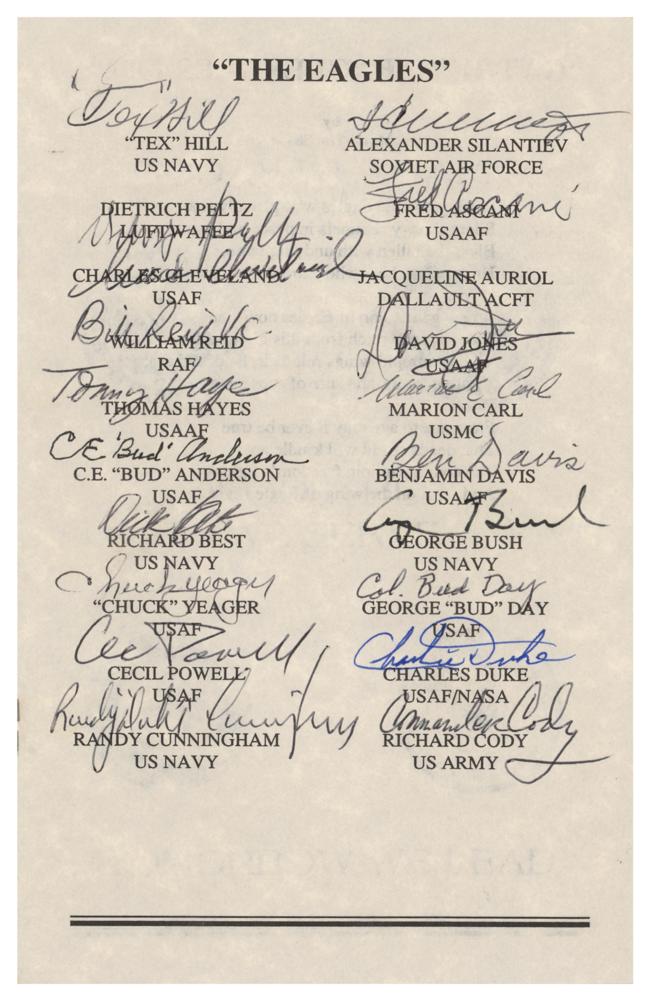 “THE EAGLES”
"Tex" Hill
“TEX” HILL
US NAVY
ALEXANDER SILANTIEV
SOVIET AIR FORCE
DIETRICH PELTZ
LUFTWAFFE
Fred Ascani
FRED ASCANI
USAAF
CHARLES CLEVELAND
USAF
JACQUELINE AURIOL
DALLAULT ACFT
Bill Reid VC.
WILLIAM REID
RAF
DAVID JONES
USAAF
Tommy Hayes
THOMAS HAYES
USAAF
Marion E Carl
MARION CARL
USMC
C.E. "Bud" Anderson
C.E. “BUD” ANDERSON
USAF
Ben Davis
BENJAMIN DAVIS
USAAF
Dick Best
RICHARD BEST
US NAVY
G Bush
GEORGE BUSH
US NAVY
Chuck Yeager
“CHUCK” YEAGER
USAF
Col. Bud Day
GEORGE “BUD” DAY
USAF
Cec Powell
CECIL POWELL
USAF
Charlie Duke
CHARLES DUKE
USAF/NASA
Randy "Duke" Cunningham
RANDY CUNNINGHAM
US NAVY
Commander Cody
RICHARD CODY
US ARMY